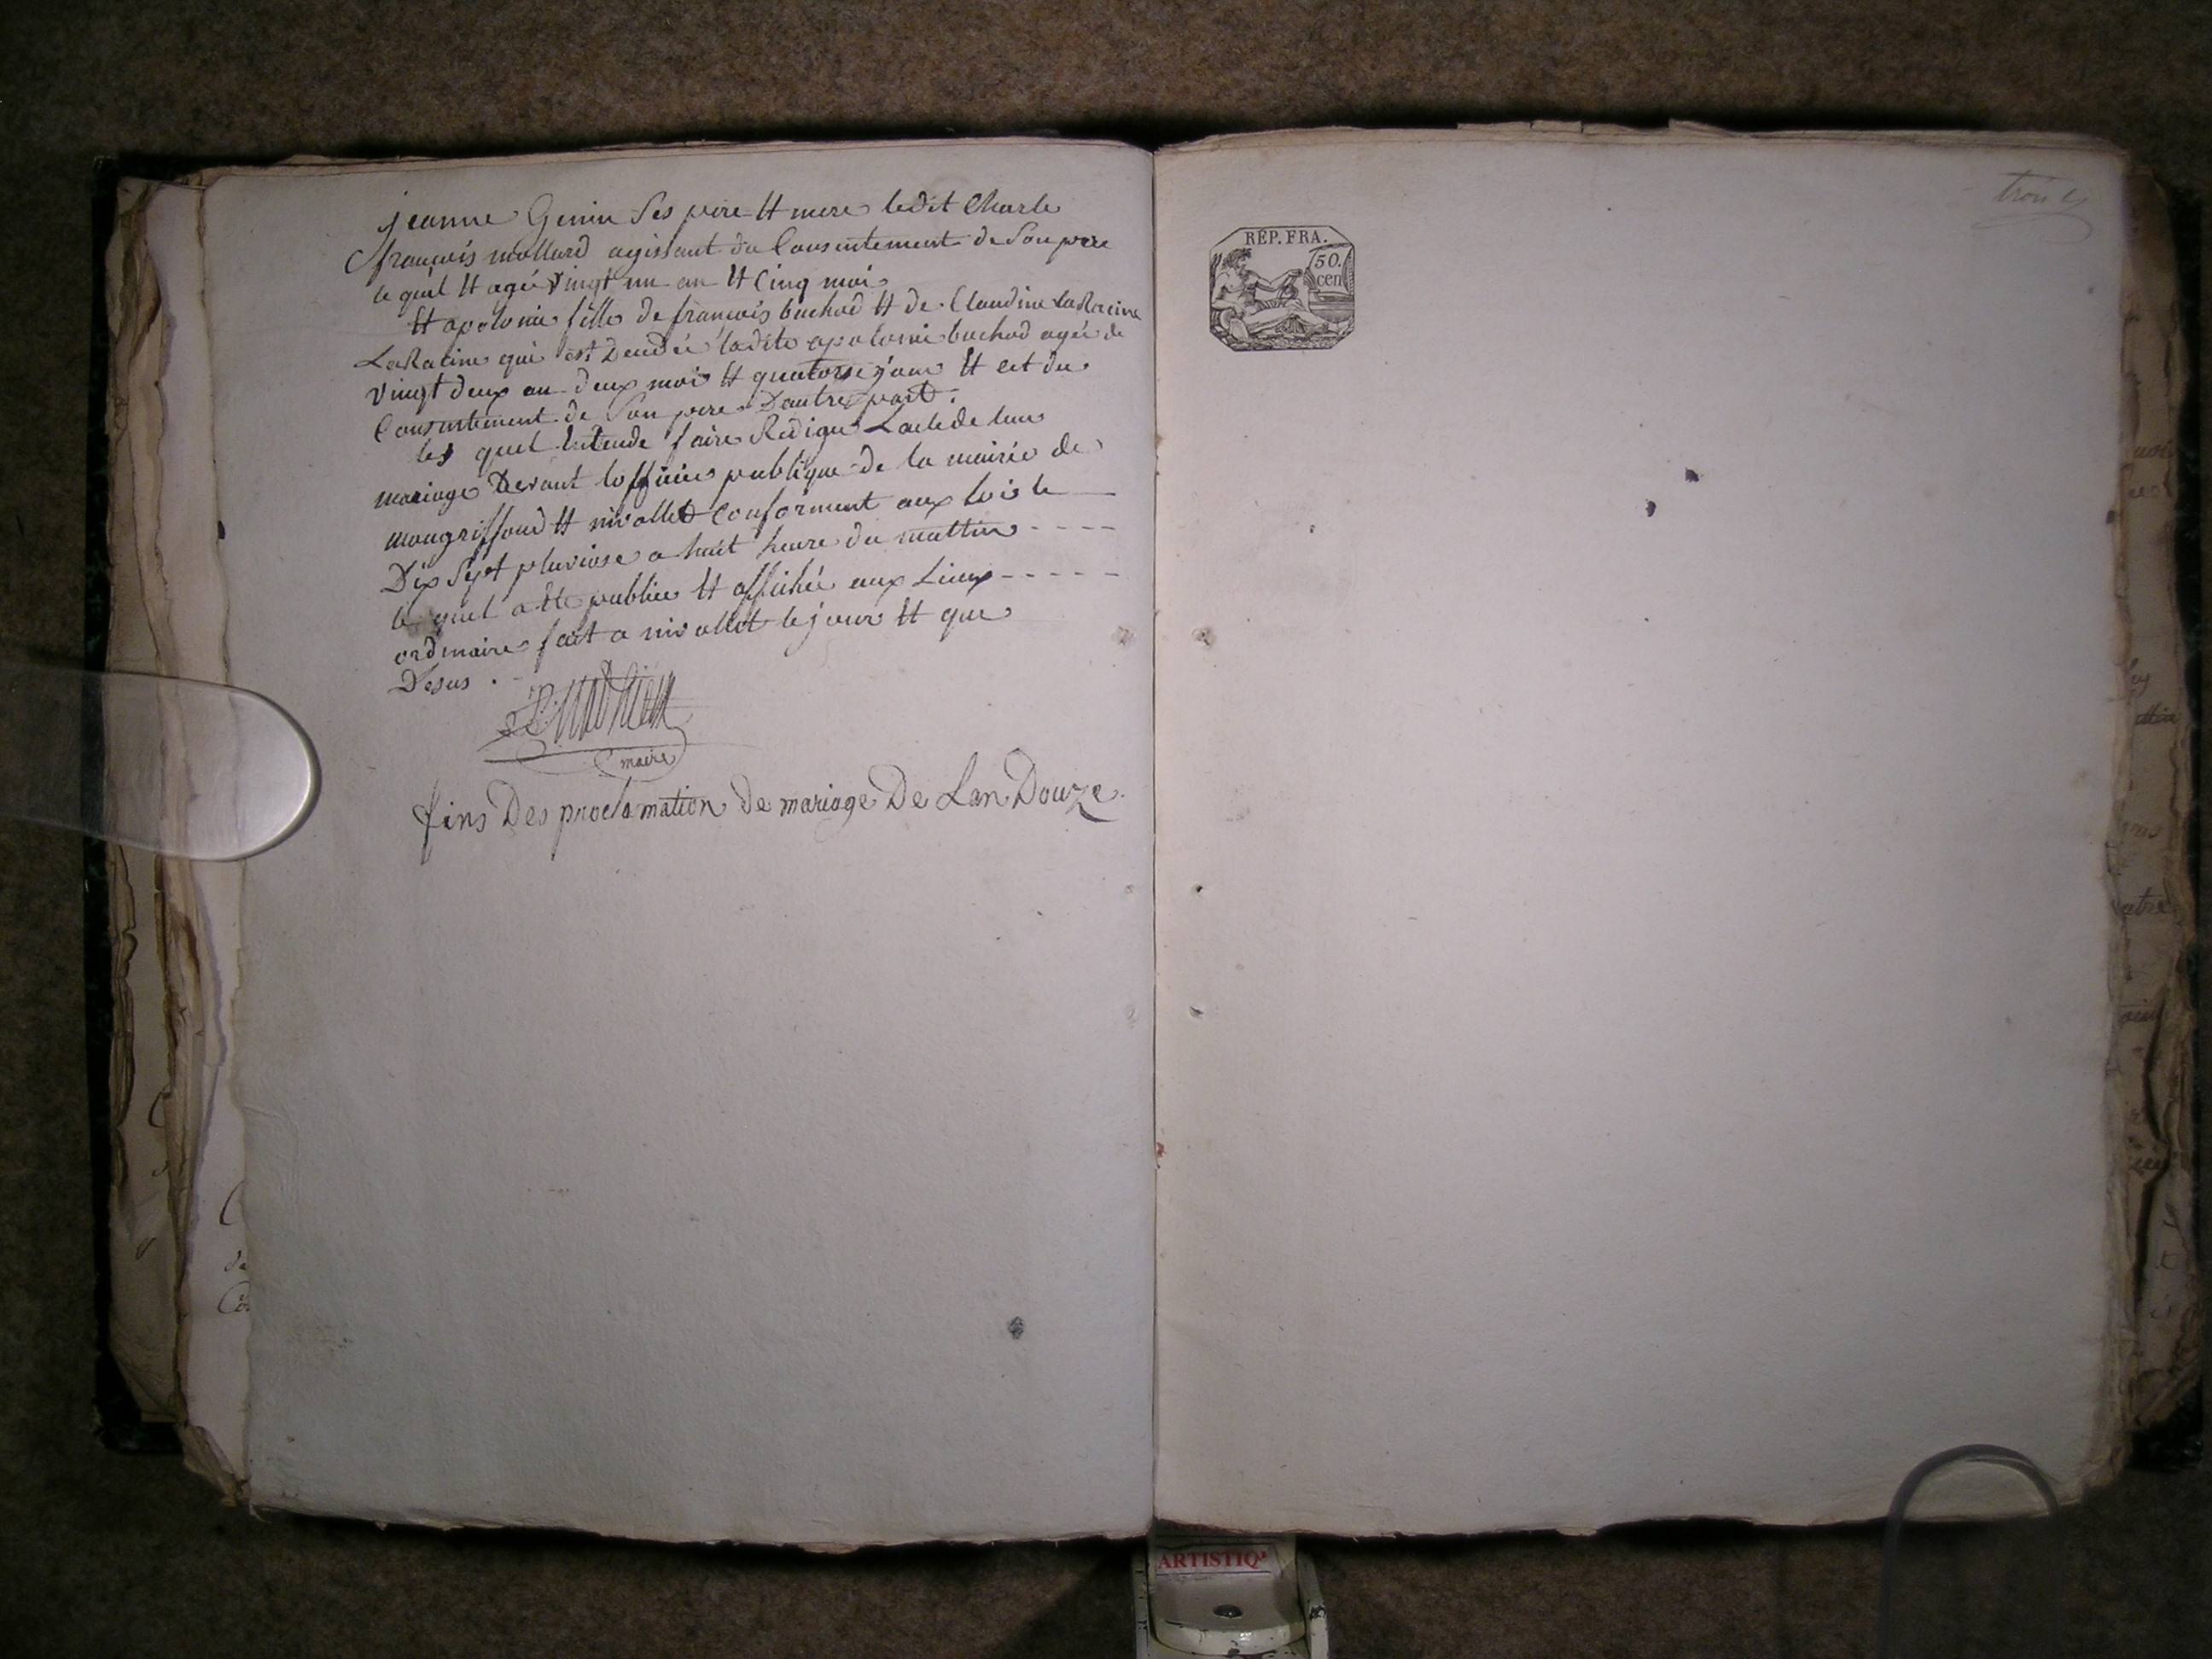 jeanne Genin Ses pere Et mere ledit Charle
françois mollard agissant du Consentement de Son pere
le quel Et agé Vingt un an Et Cinq moi
Et apolonie fille de francois buchod Et de Claudine LaRacine
LaRacine qui est Decedée ladite apolonie buchod agée de
Vingt deux an deux moi Et quatorse jour Et est du
Consentement de Son pere Dautre part.
les quel Entende faire Rediger Lacte de leur
mariage Devant lofficier publique de la mairie de
mongriffond Et nivollet Conforment aux lois le
Dix Sept pluviose a huit heure du mattin - - - -
le quel a Ete publiée Et affichée aux Lieux - - - - -
ordinaire fait a nivollet le jour Et que
Desus . -
maire
fins Des proclamation de mariage De Lan Douze.
REP. FRA.
50.
cen
ARTISTIQ